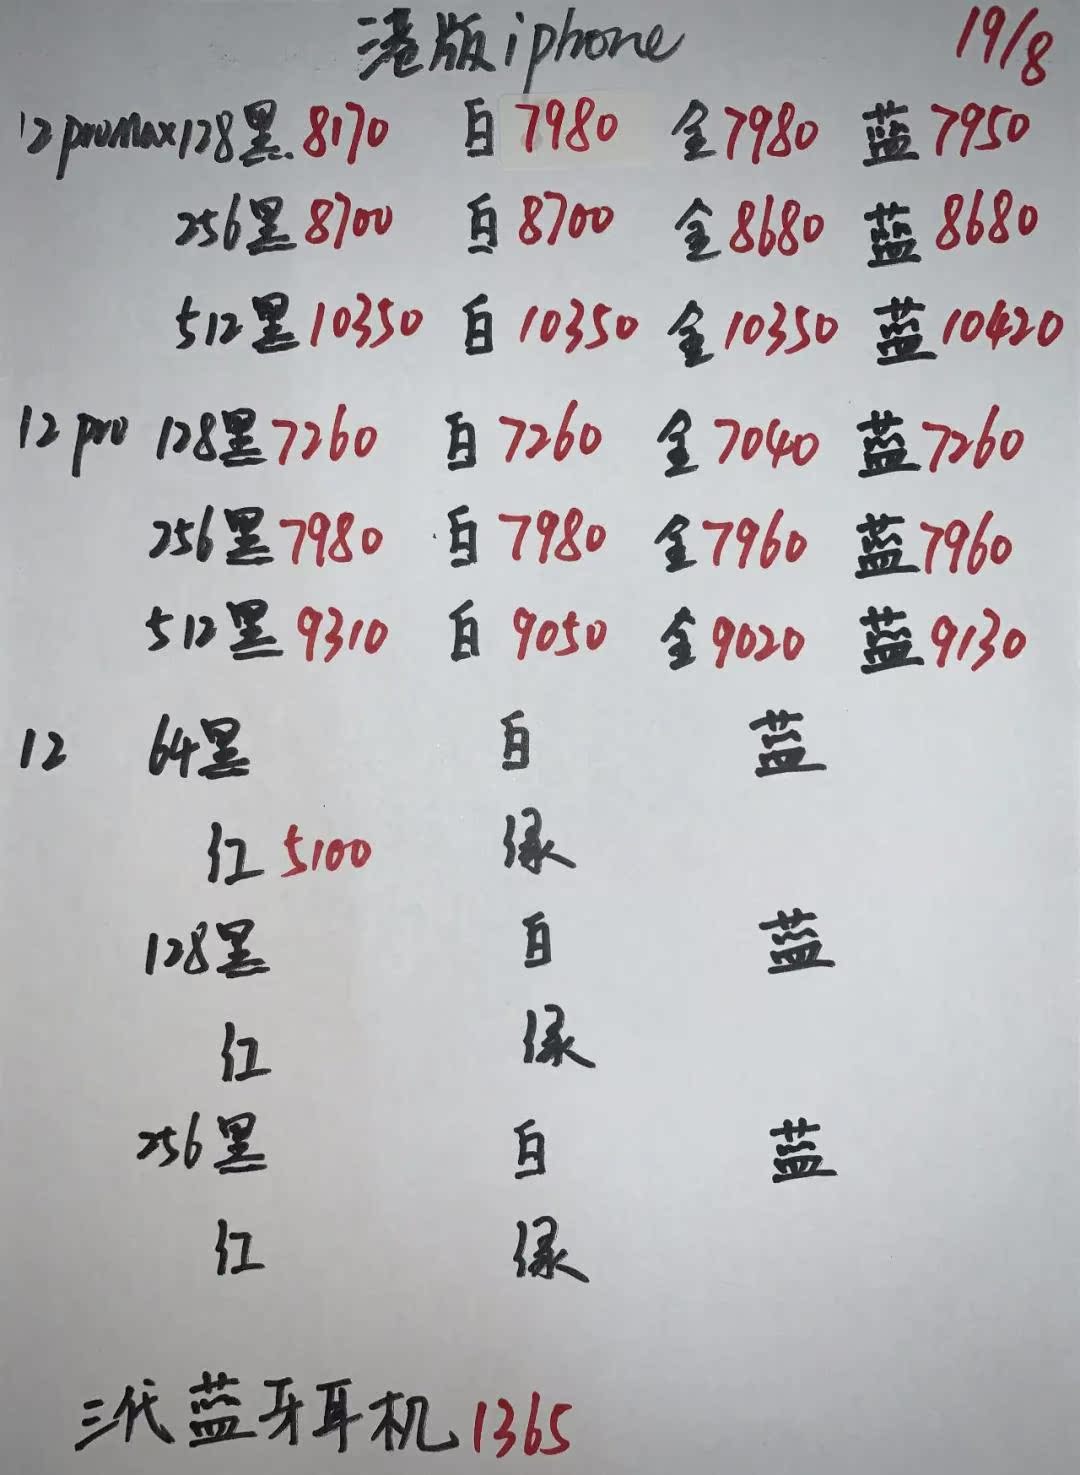 港版iphone 19/8
12promax128黑8170 白7980 金7980 蓝7950
256黑8700 白8700 金8680 蓝8680
512黑10350 白10350 金10350 蓝10420
12pro 128黑7260 白7260 金7040 蓝7260
256黑7980 白7980 金7960 蓝7960
512黑9310 白9050 金9020 蓝9130
12 64黑 白 蓝
红5100 绿
128黑 白 蓝
红 绿
256黑 白 蓝
红 绿
三代蓝牙耳机1365